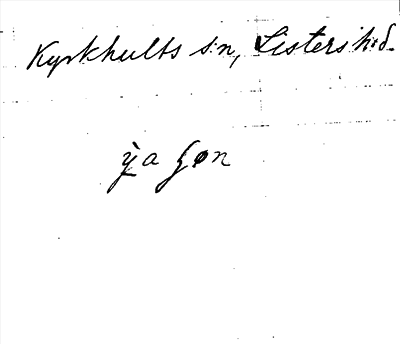 Kyrkhults s:n, Listers hd.
ỳa gøn